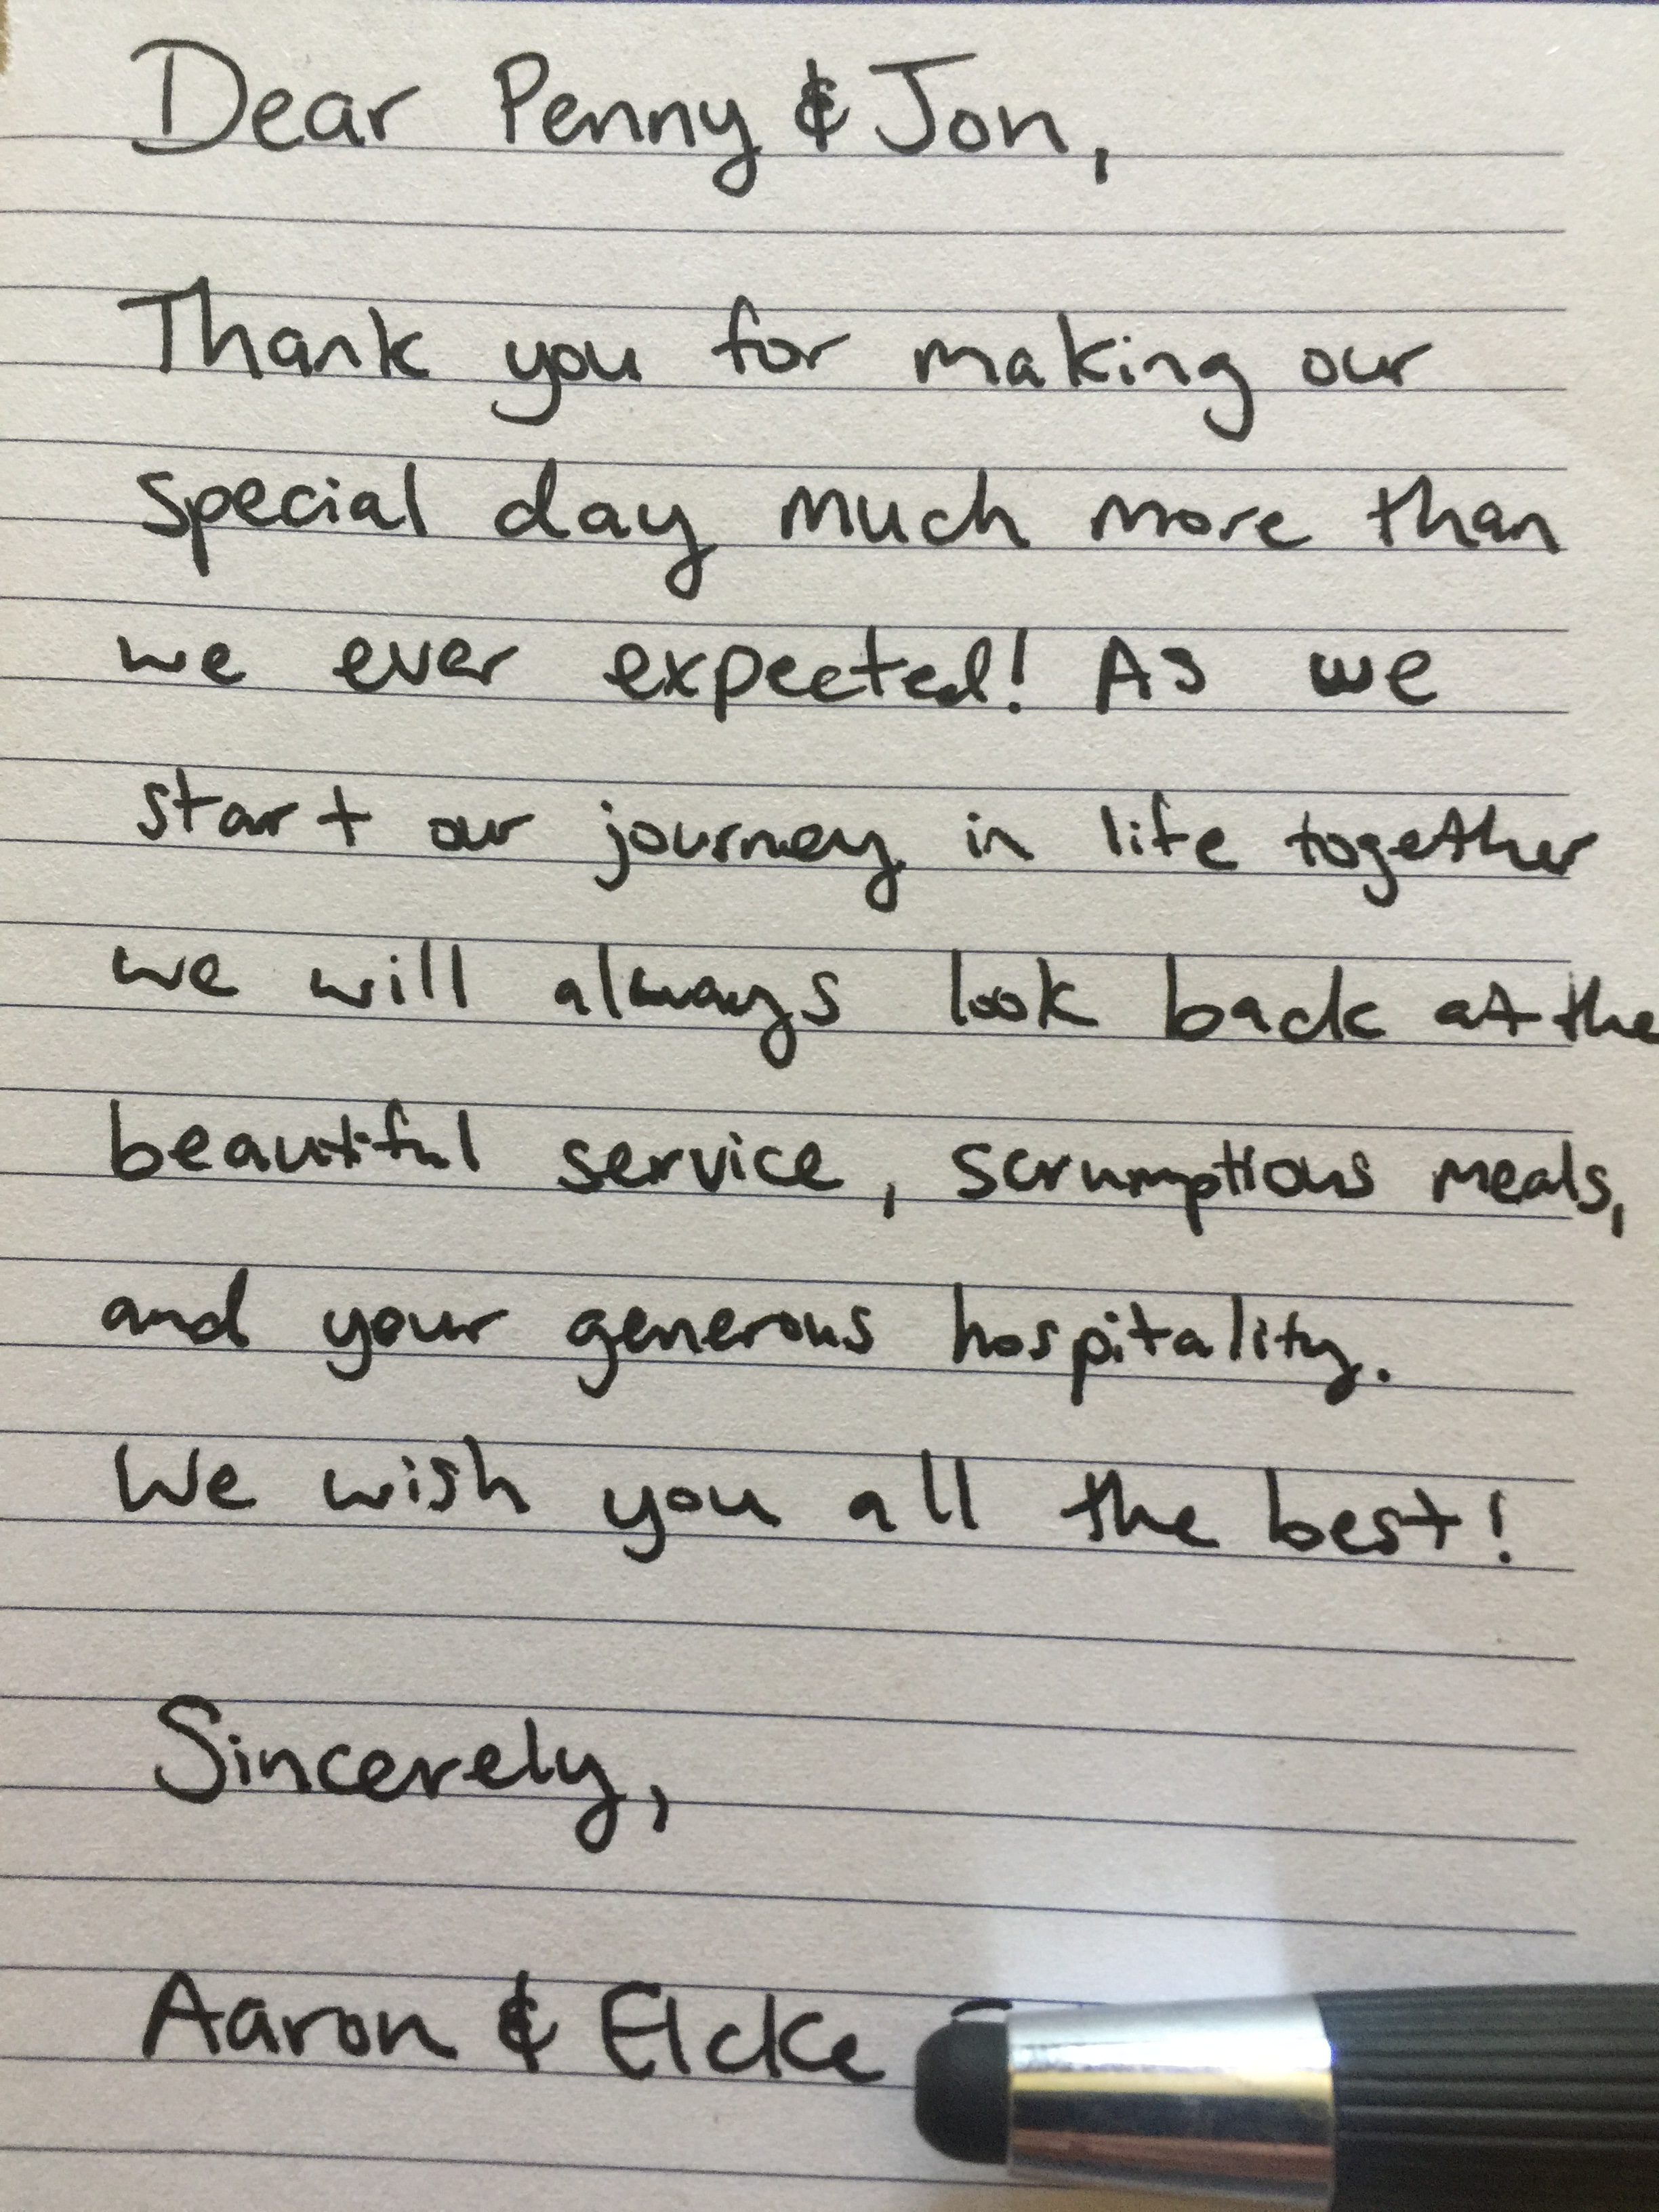 Dear Penny & Jon,
Thank you for making our
special day much more than
we ever expected! As we
start our journey in life together
we will always look back at the
beautiful service, scrumptious meals,
and your generous hospitality.
We wish you all the best!
Sincerely,
Aaron & Elcke